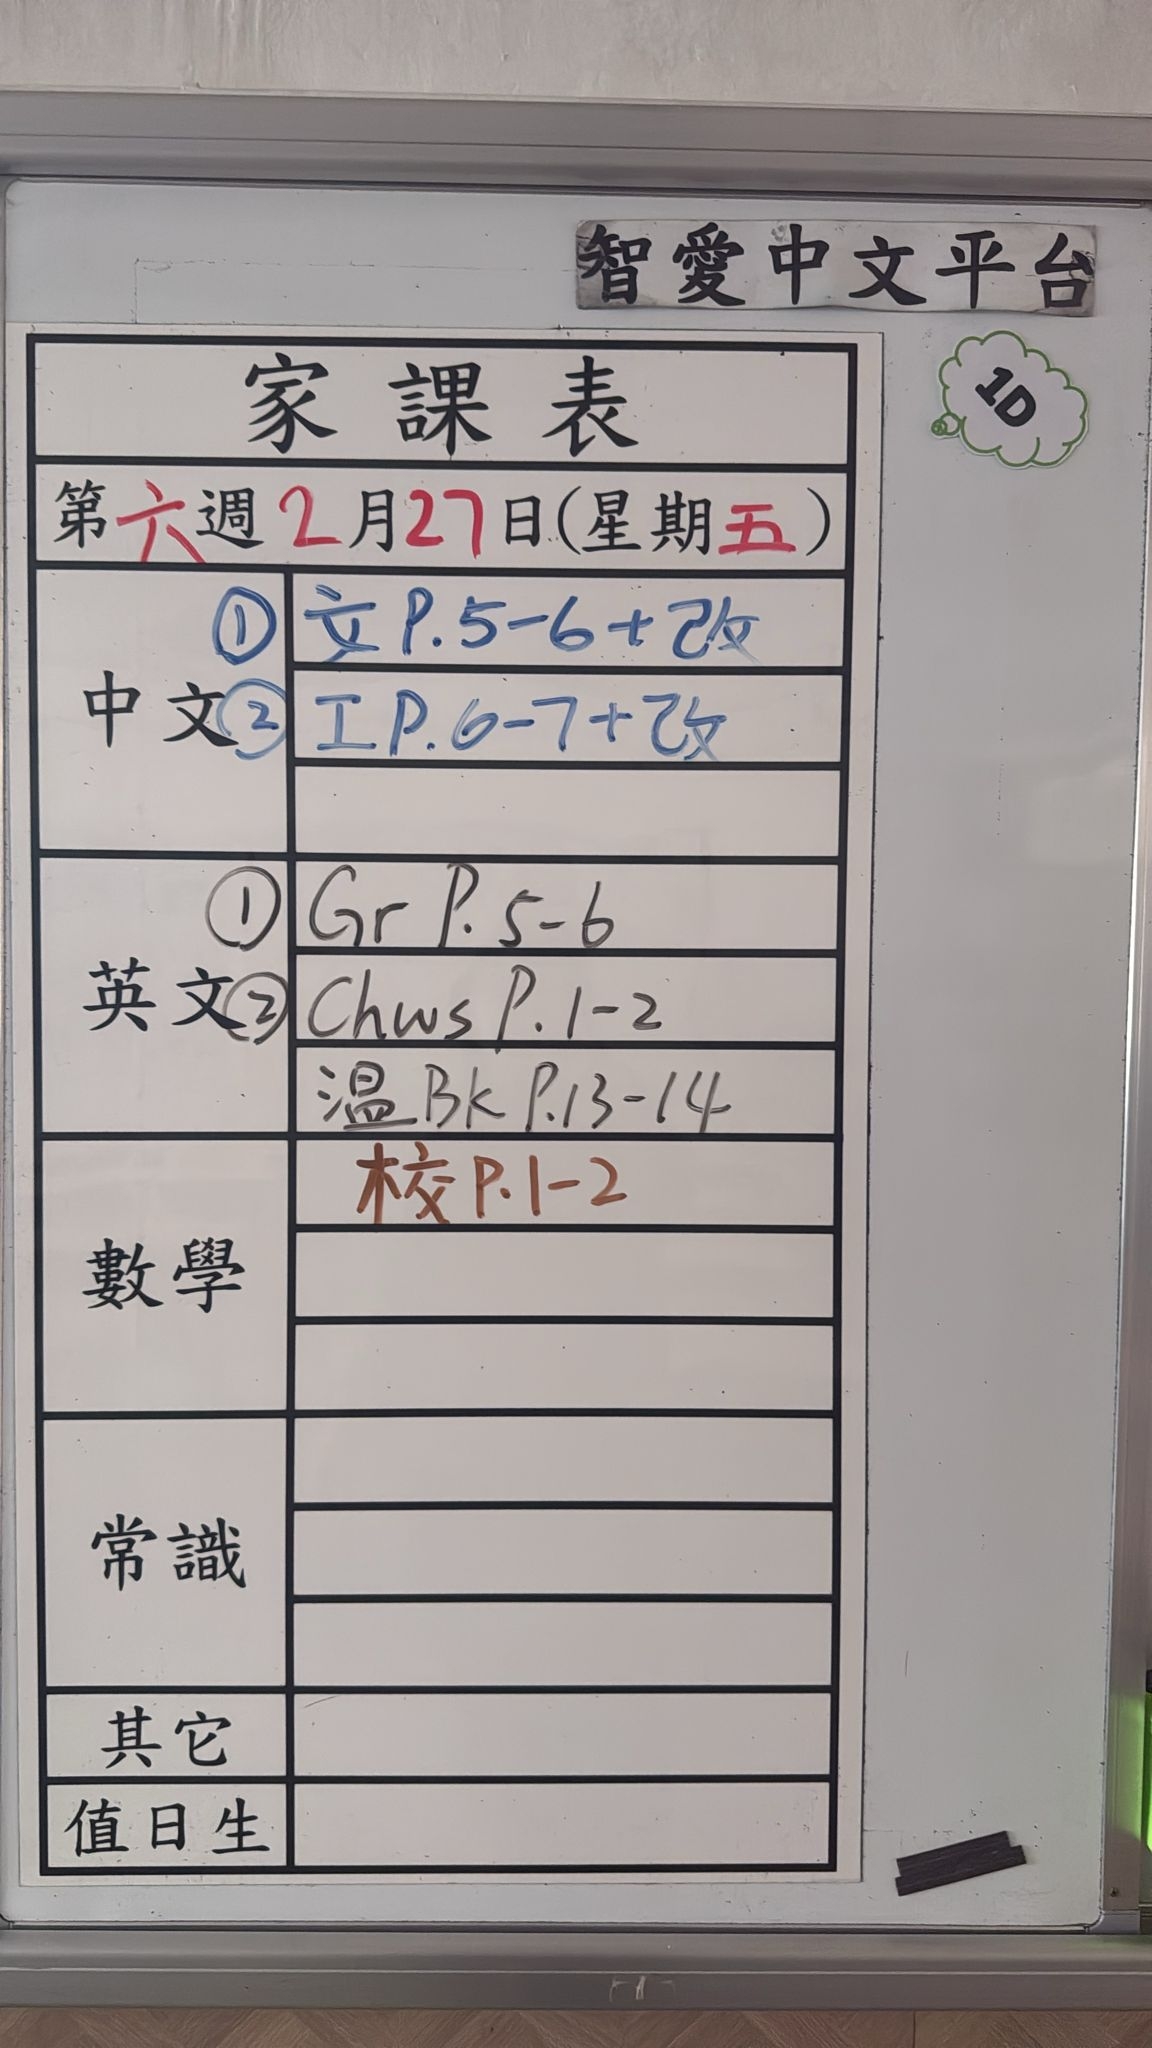 智愛中文平台
1D
家課表
第六週2月27日(星期五)
中文
① 文P.5-6+改
② 工P.6-7+改
英文
① Gr P.5-6
② Chws P.1-2
温BK P.13-14
數學
校P.1-2
常識
其它
值日生